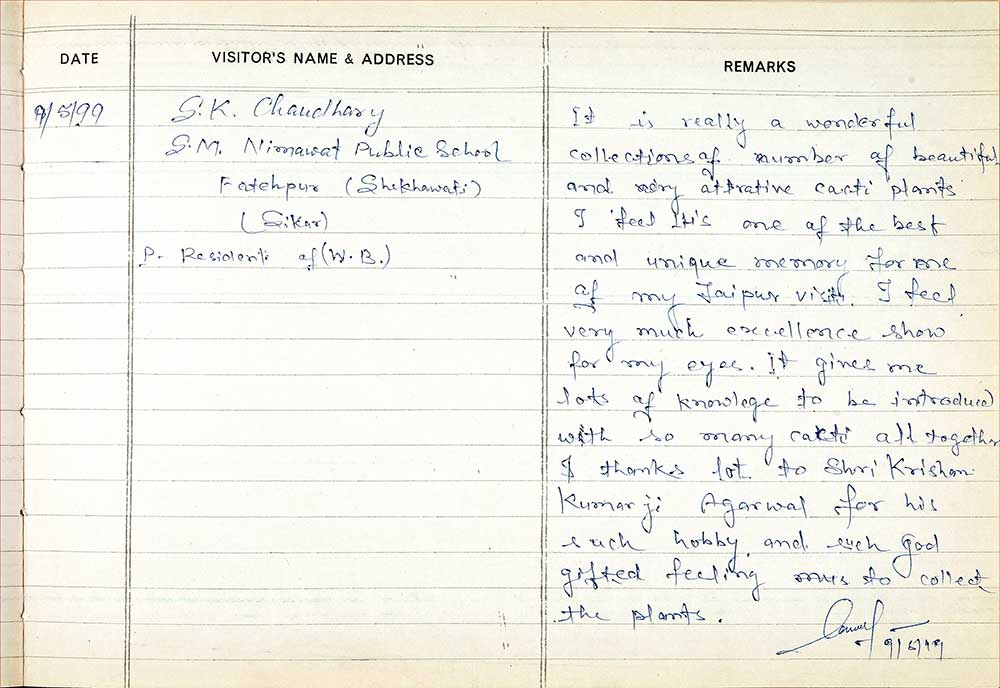 DATE
VISITOR'S NAME & ADDRESS
REMARKS
9/5/99
S.K. Chaudhary
S.M. Nimawat Public School
Fatehpur (Shekhawati)
(Sikar)
P. Resident of (W.B.)
It is really a wonderful
collections of number of beautiful
and very attrative cacti plants
I feel It's one of the best
and unique memory for me
of my Jaipur visit. I feel
very much excellence show
for my eyes. It gives me
lots of knowlege to be introduced
with so many cacti all together
I thanks lot to Shri Krishan
Kumar ji Agarwal for his
such hobby and such god
gifted feeling to collect
the plants.
9/5/99